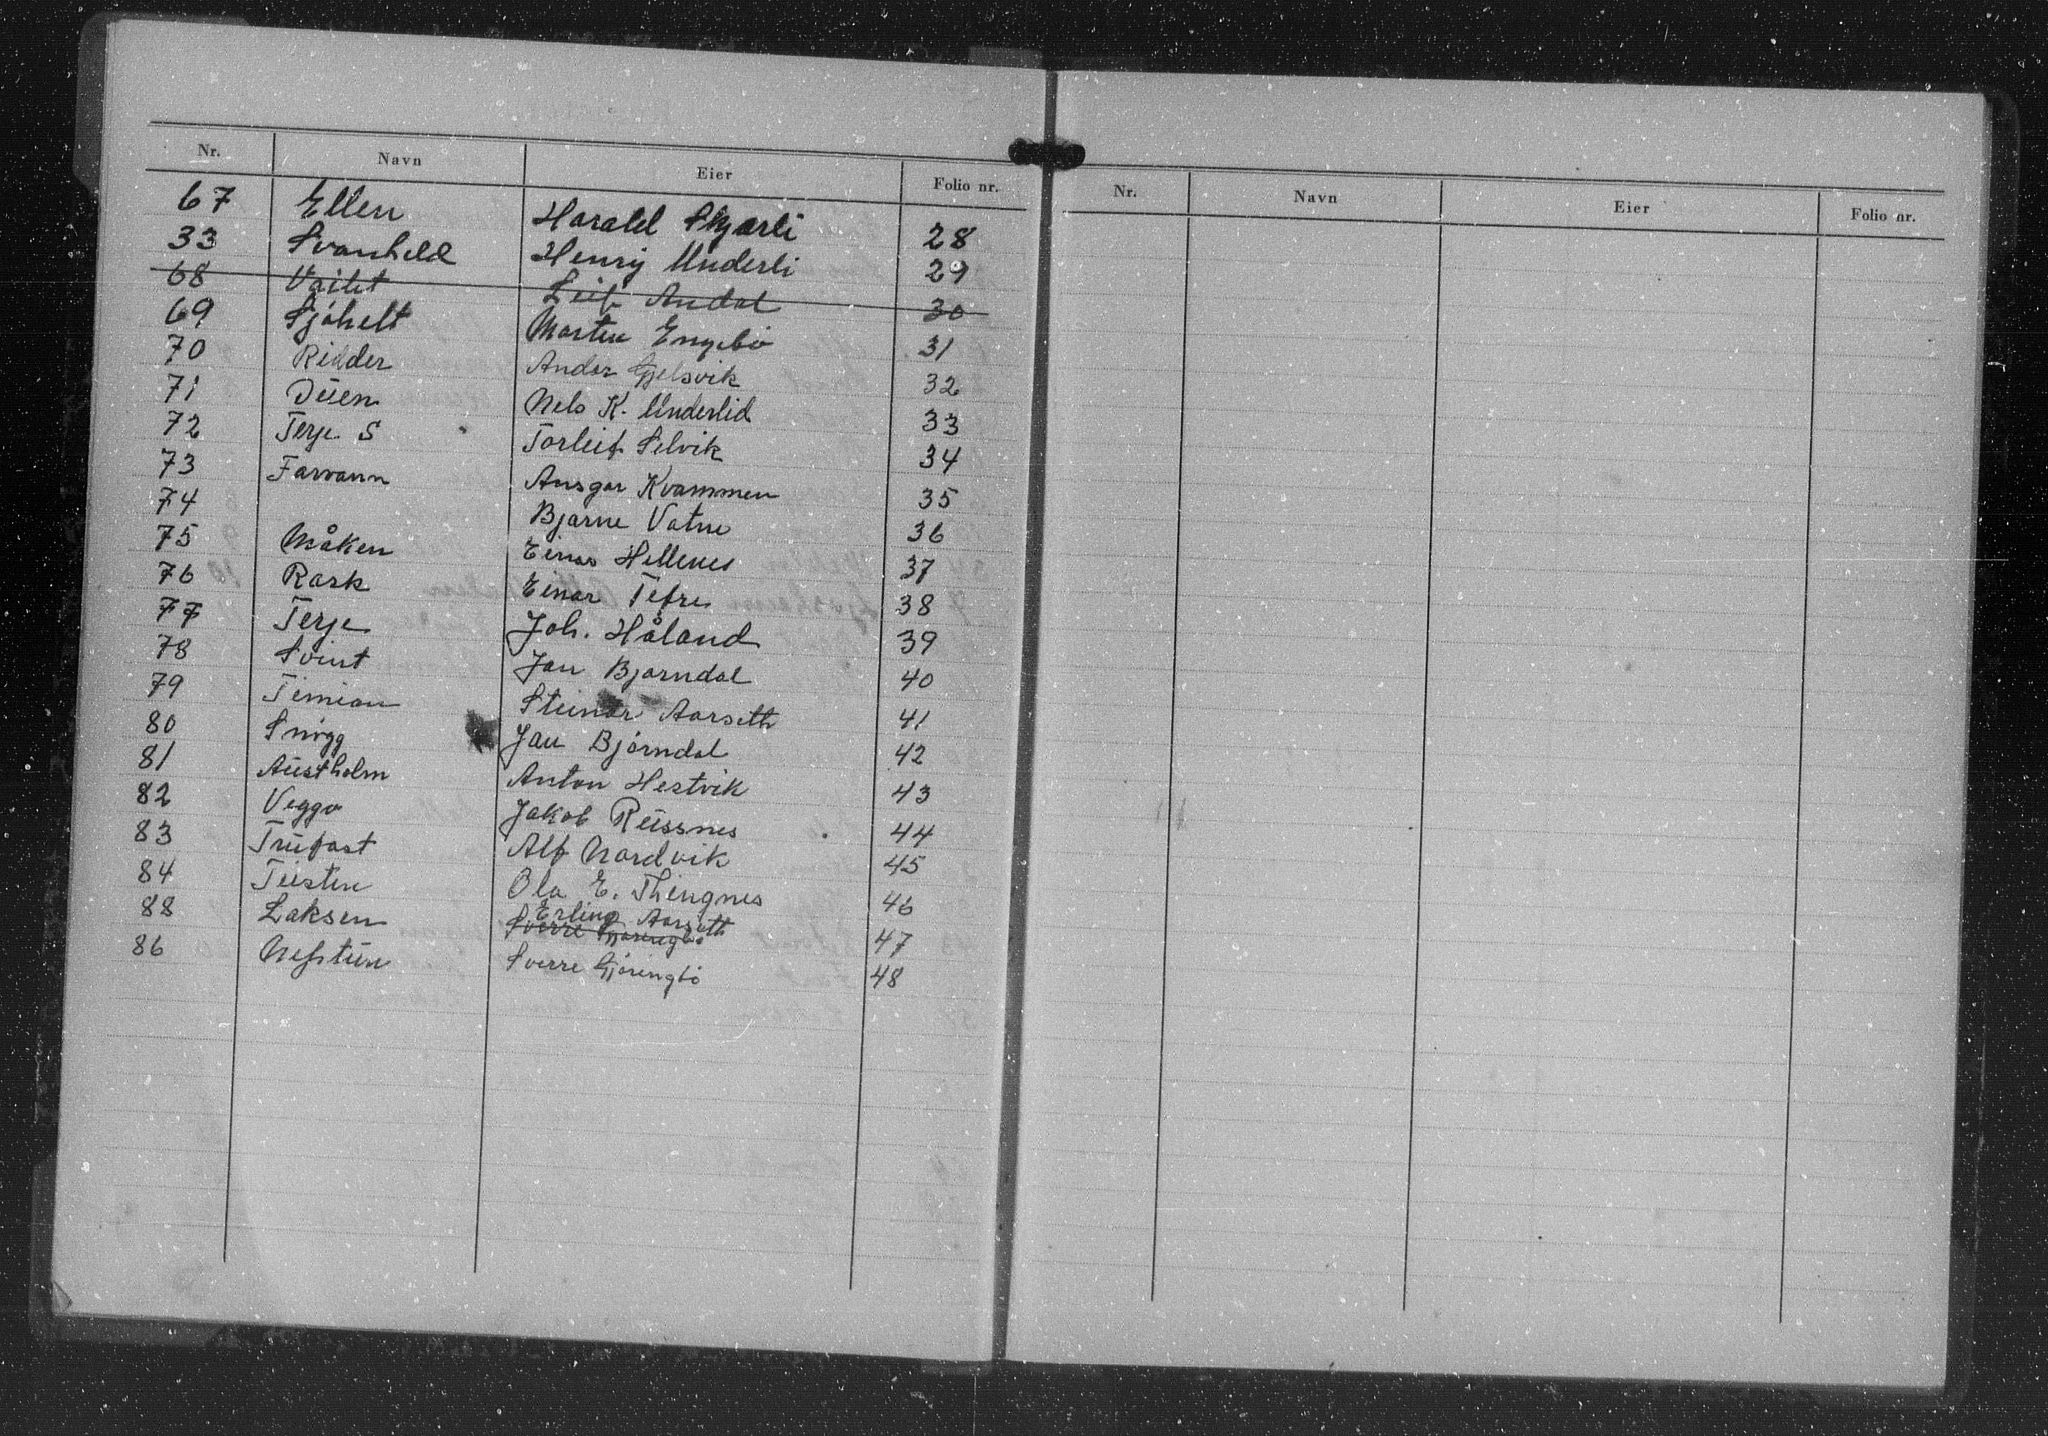 Nr. Navn Eier Folio nr.
67 Ellen Harald Skjærli 28
33 Svanhild Henry Underli 29
68 Leif Andal 30
69 Morten Engebø 31
70 Ridder Andor Gjelsvik 32
71 Nels K. Underlid 33
72 Terje S Torleif Selvik 34
73 Farvann Ansgar Kvammen 35
74 Bjarne Vatne 36
75 Måken Einar Hellenes 37
76 Rask Einar Tefre 38
77 Terje Joh. Håland 39
78 Svint Jan Bjørndal 40
79 Timian Steinar Aarseth 41
80 Snøgg Jan Bjørndal 42
81 Austholm Anton Hestvik 43
82 Veggo Jakob Russnes 44
83 Trufast Alf Nordvik 45
84 Teisten Ola E. Thingnes 46
88 Laksen Erling Aarseth
Sverre Gjøringbø 47
86 Sverre Gjøringbø 48
Nr. Navn Eier Folio nr.